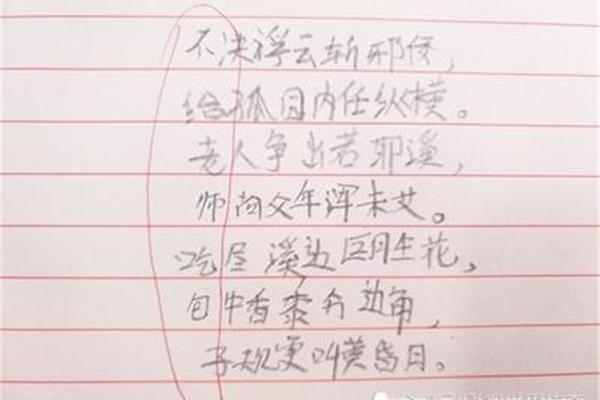 不决浮云斩邪佞，
给孤园内任纵横。
老人争出若耶溪，
师问文年浑未艾。
吃尽溪边巨月生花，
包中香黍分边角，
子规更叫黄昏月。